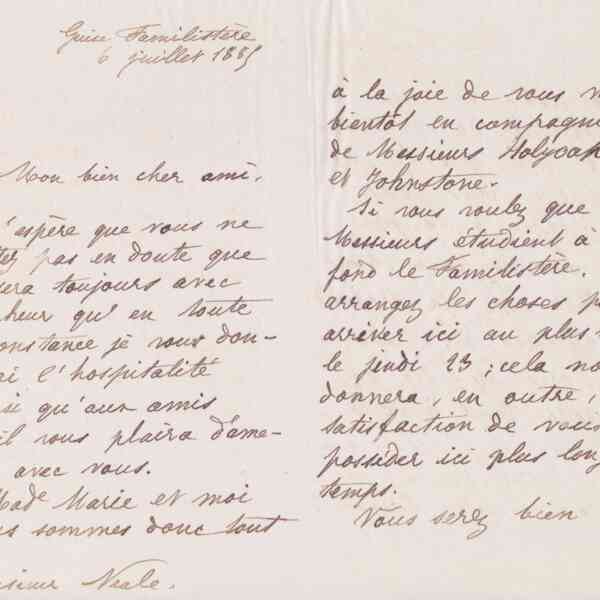 Guise Familistère
6 juillet 1885
Mon bien cher ami.
'espère que vous ne
tez pas en doute que
sera toujours avec
heur qu'en toute
onstance je vous don-
ai l'hospitalité
si qu'aux amis
il vous plaira d'ame-
avec vous.
Made Marie et moi
s sommes donc tout
sieur Neale.
à la joie de vous
bientôt en compagni
de Messieurs Holyoak
et Johnstone.
Si vous voulez que
Messieurs étudient à
fond le Familistère.
arrangez les choses p
arriver ici au plus
le jeudi 23 ; cela no
donnera, en outre,
satisfaction de vous
posséder ici plus long
temps.
Vous serez bien